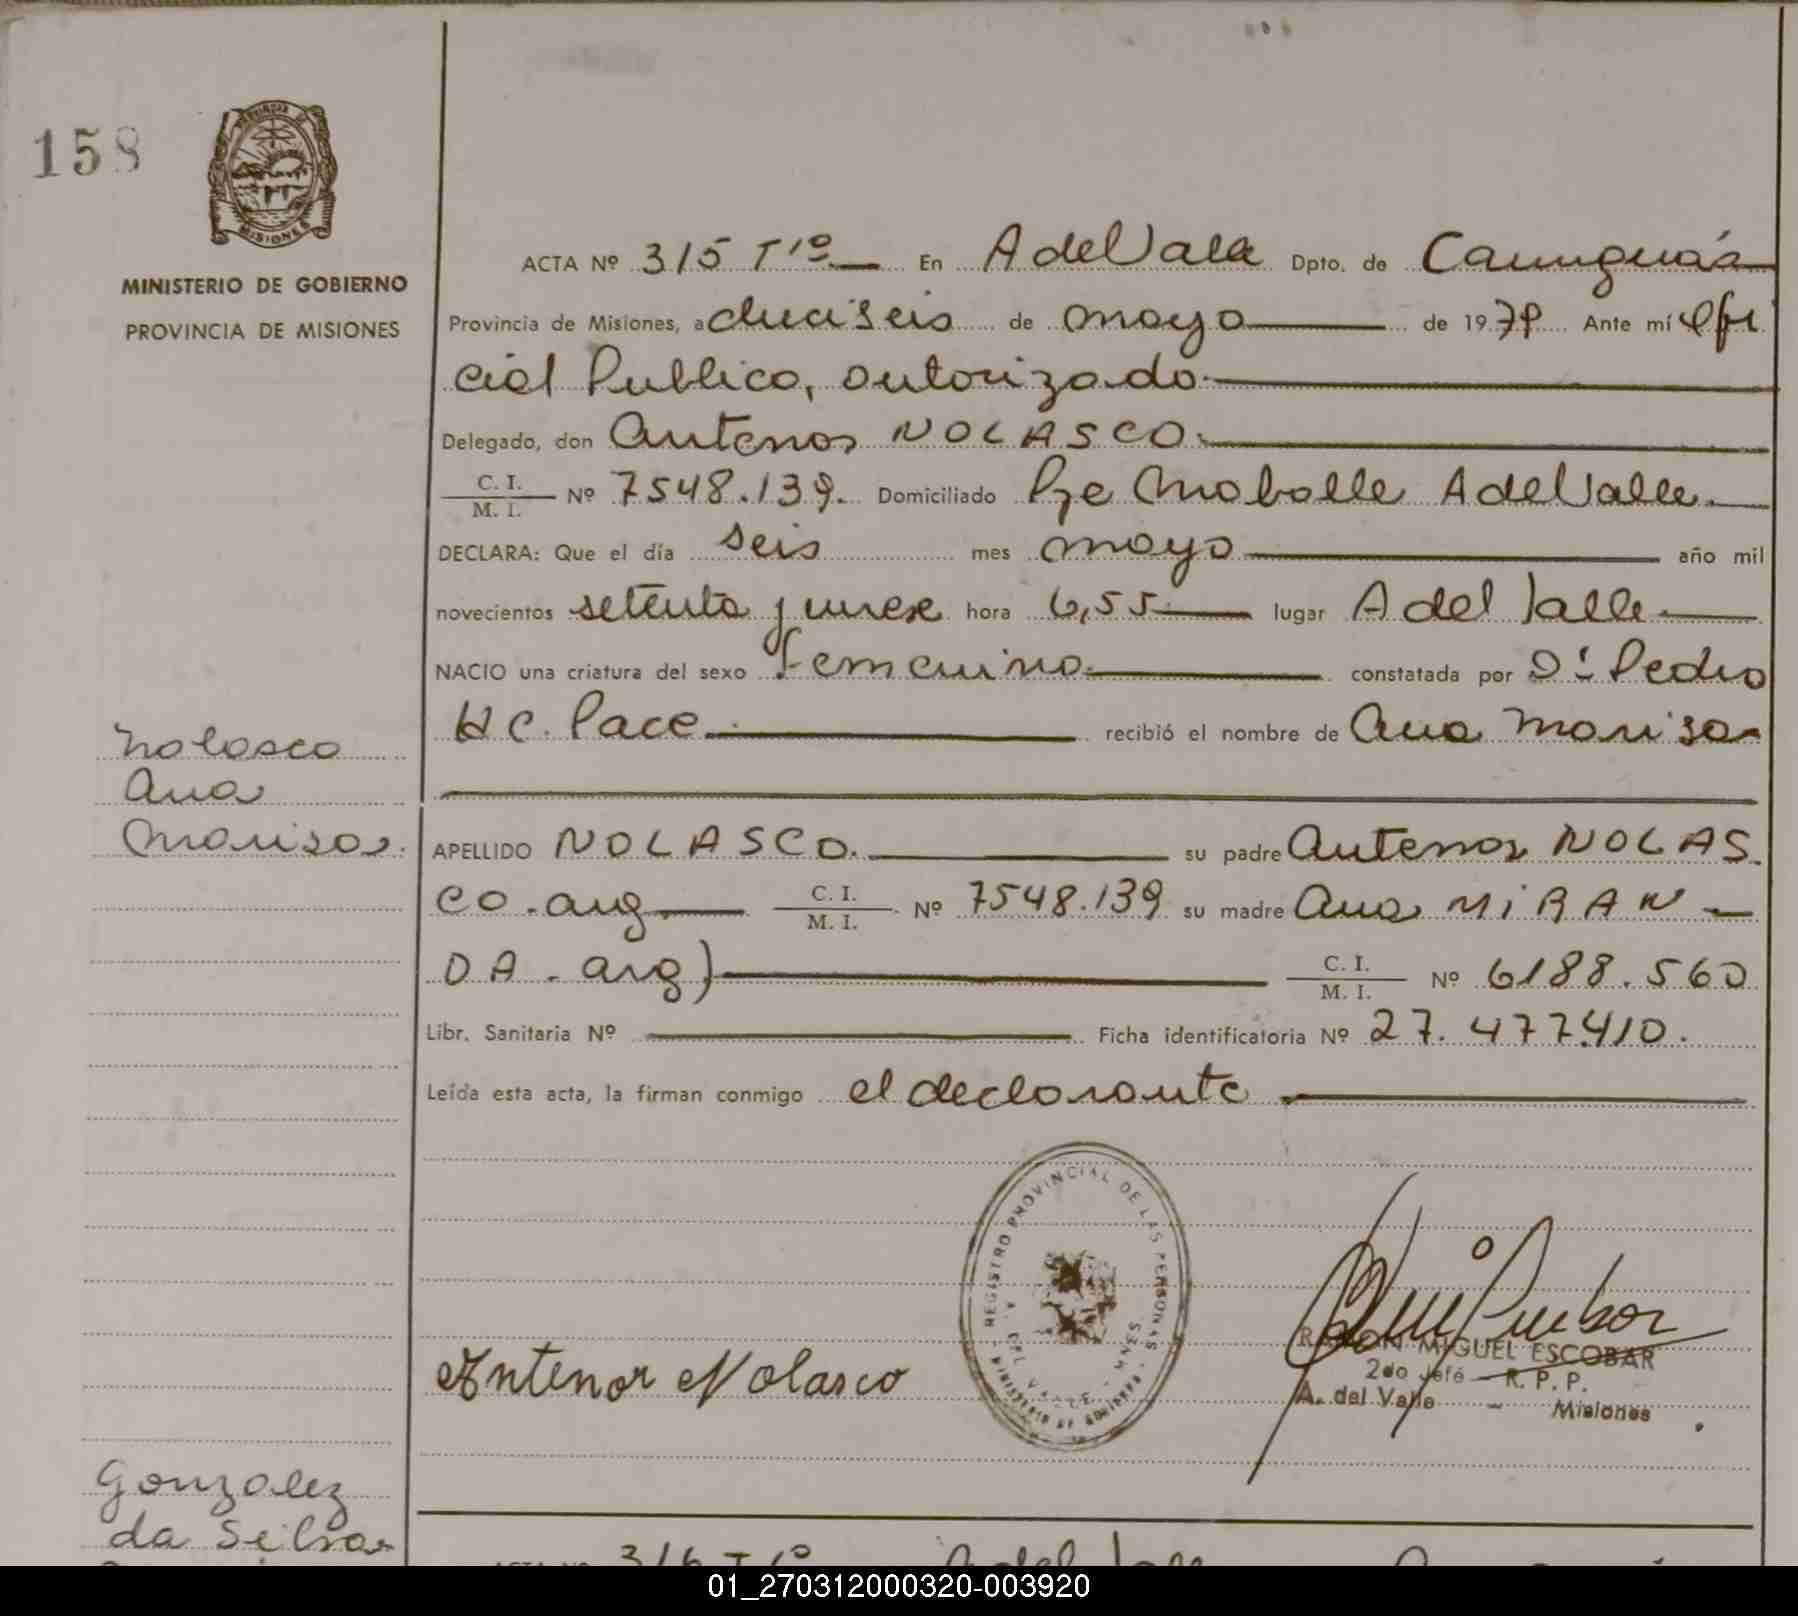 158
PROVINCIA DE
MISIONES
MINISTERIO DE GOBIERNO
PROVINCIA DE MISIONES
ACTA Nº 315 Tº1º En A del Valle Dpto. de Cainguás
Provincia de Misiones, a dieciseis de mayo de 1979 Ante mí Ofi
cial Publico, autorizado
Delegado, don Antenor NOLASCO.
C. I. / M. I. Nº 7548.139. Domiciliado Pje Mobolle A del Valle
DECLARA: Que el día seis mes mayo año mil
novecientos setenta y nueve hora 6,55 lugar A del Valle
NACIO una criatura del sexo femenino constatada por Dr Pedro
H C. Pace recibió el nombre de Ana Marisa
Nolasco
Ana
Marisa.
APELLIDO NOLASCO. su padre Antenor NOLAS
CO. arg C. I. / M. I. Nº 7548.139 su madre Ana MiRAN
DA. arg) C. I. / M. I. Nº 6188.560
Libr. Sanitaria Nº Ficha identificatoria Nº 27.477.410.
Leída esta acta, la firman conmigo el declarante
REGISTRO PROVINCIAL DE LAS PERSONAS
A. DEL VALLE - MNES
MINISTERIO DE GOBIERNO
Antenor Nolasco
RAMON MIGUEL ESCOBAR
2do Jefe R. P. P.
A. del Valle - Misiones
Gonzalez
da Silva
ACTA Nº 316 Tº1º A del Valle
01_270312000320-003920